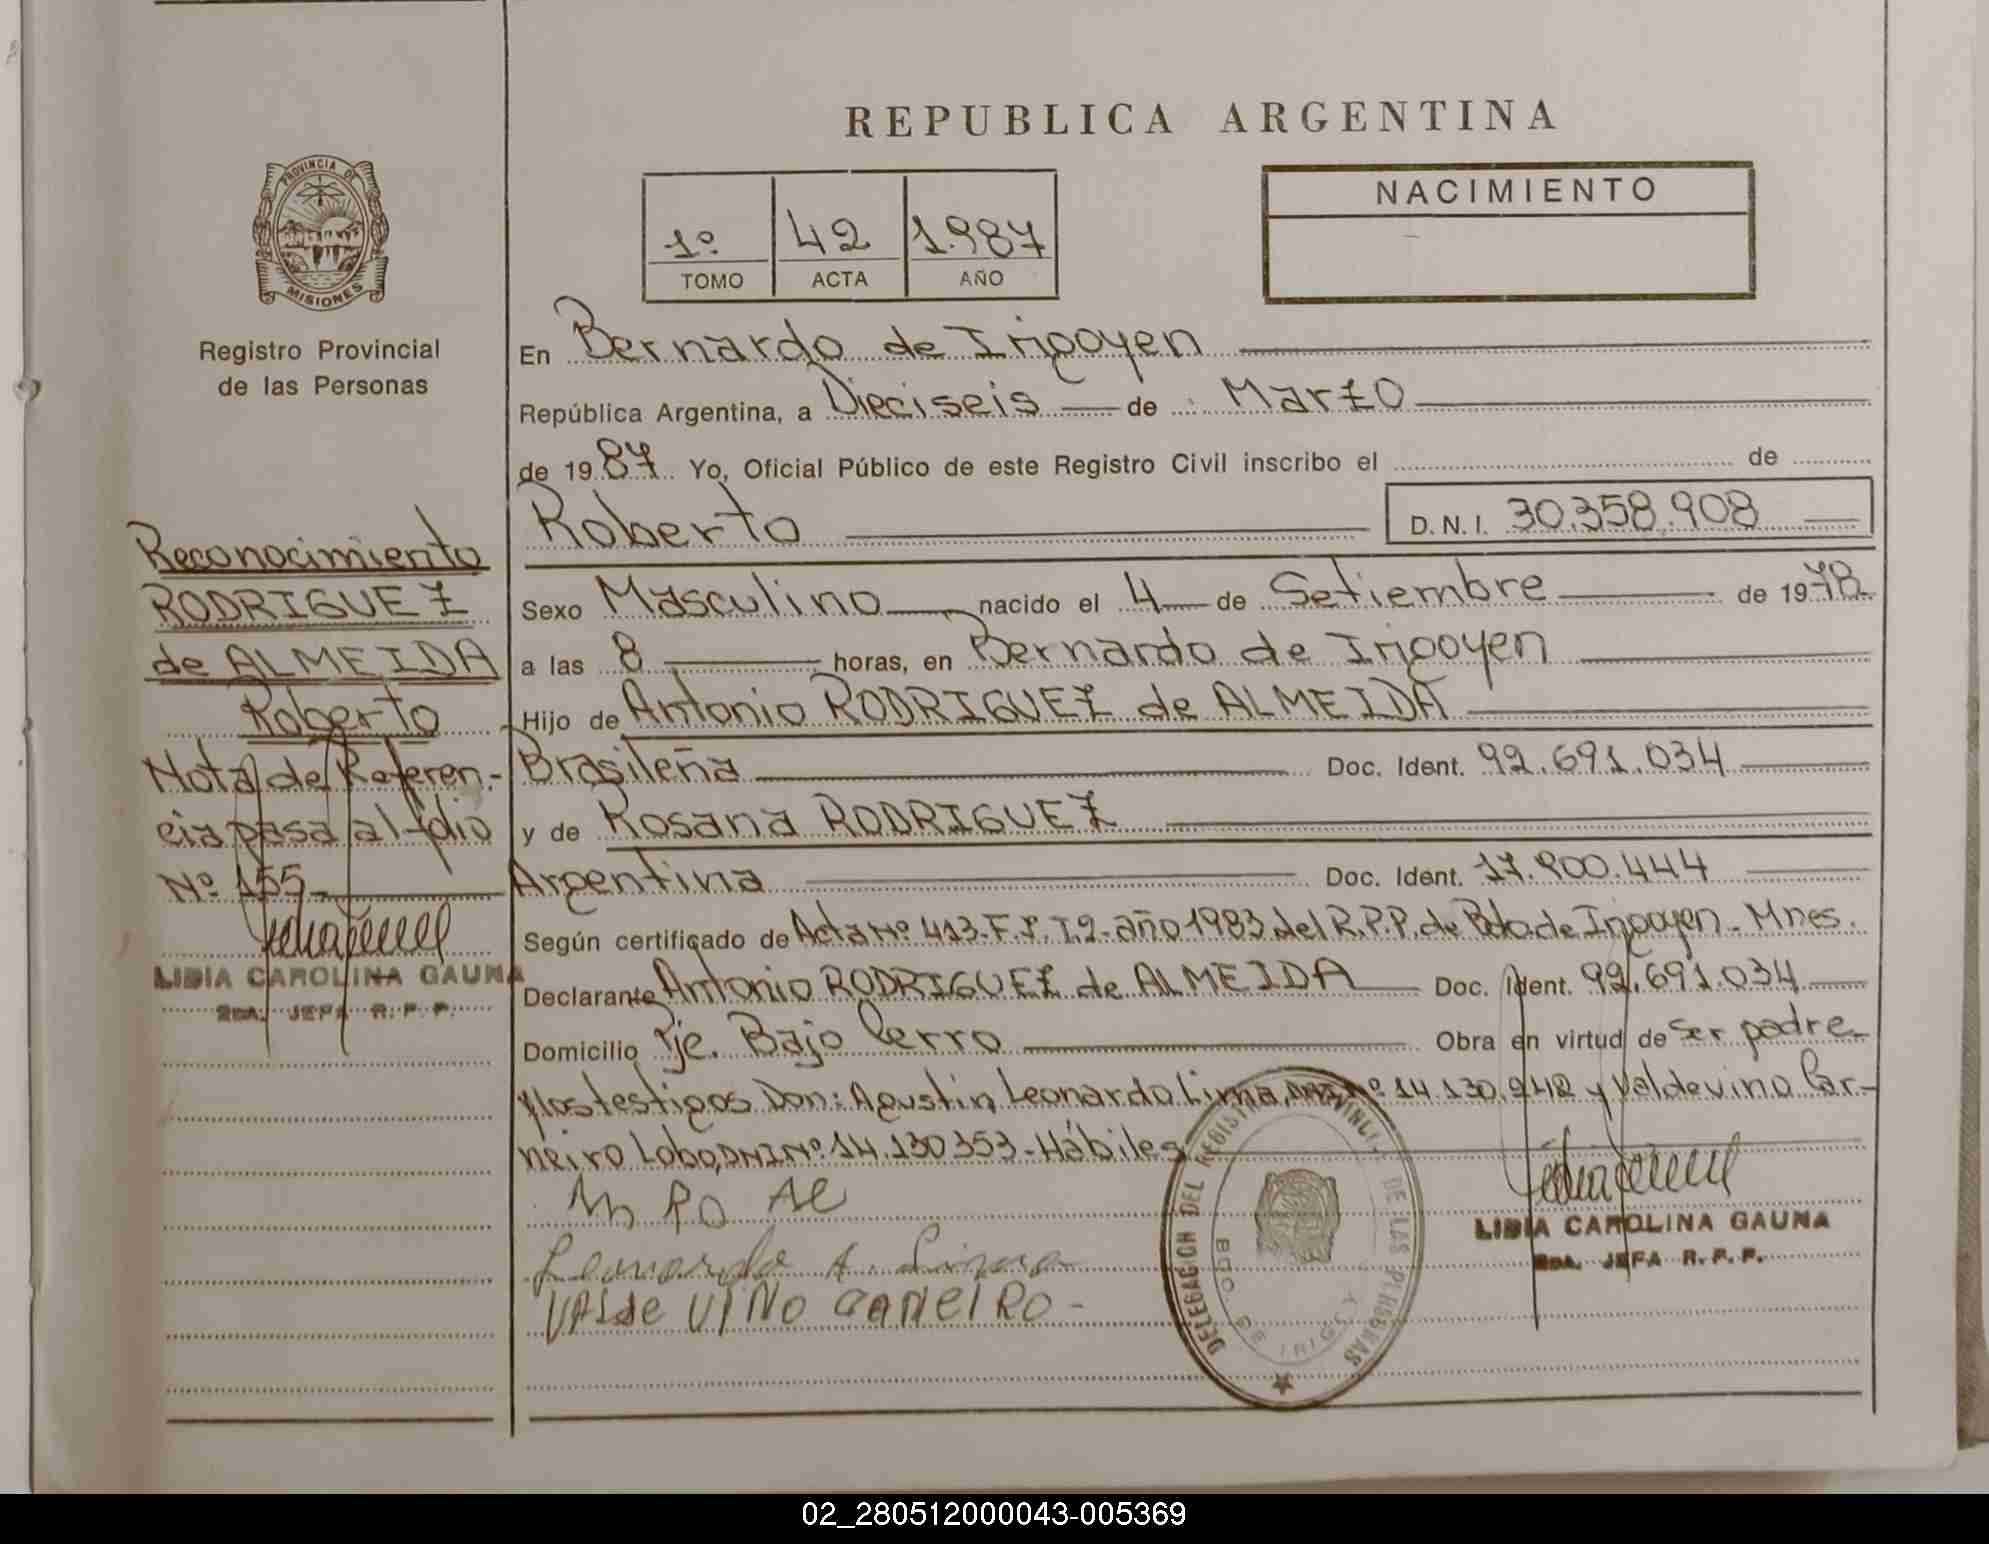 REPUBLICA ARGENTINA
PROVINCIA DE
MISIONES
Registro Provincial
de las Personas
1º 42 1.987
TOMO ACTA AÑO
NACIMIENTO
En Bernardo de Irigoyen
República Argentina, a Dieciseis de Marzo
de 1987 Yo, Oficial Público de este Registro Civil inscribo el de
Roberto D.N.I. 30.358.908
Sexo Masculino nacido el 4 de Setiembre de 1978
a las 8 horas, en Bernardo de Irigoyen
Hijo de Antonio RODRIGUEZ de ALMEIDA
Brasileña Doc. Ident. 92.691.034
y de Rosana RODRIGUEZ
Argentina Doc. Ident. 17.900.444
Según certificado de Acta Nº 413-F.S.T.2-año 1983 del R.P.P. de Bdo. de Irigoyen-Mnes.
Declarante Antonio RODRIGUEZ de ALMEIDA Doc. Ident. 92.691.034
Domicilio Pje. Bajo Cerro Obra en virtud de ser padre
y los testigos Don: Agustin Leonardo Lima, DNI Nº 14.130.942 y Valdevino Car-
neiro Lobo, DNI Nº 14.130353-Hábiles
Leonardo A. Lima
VALDE VINO CARNEIRO-
DELEGACION DEL REGISTRO PROVINCIAL DE LAS PERSONAS
BDO. DE IRIGOYEN
LIDIA CAROLINA GAUNA
2DA. JEFA R.P.P.
Reconocimiento
RODRIGUEZ
de ALMEIDA
Roberto
Nota de Referen-
cia pasa al folio
Nº 155-
LIDIA CAROLINA GAUNA
2DA. JEFA R.P.P.
02_280512000043-005369